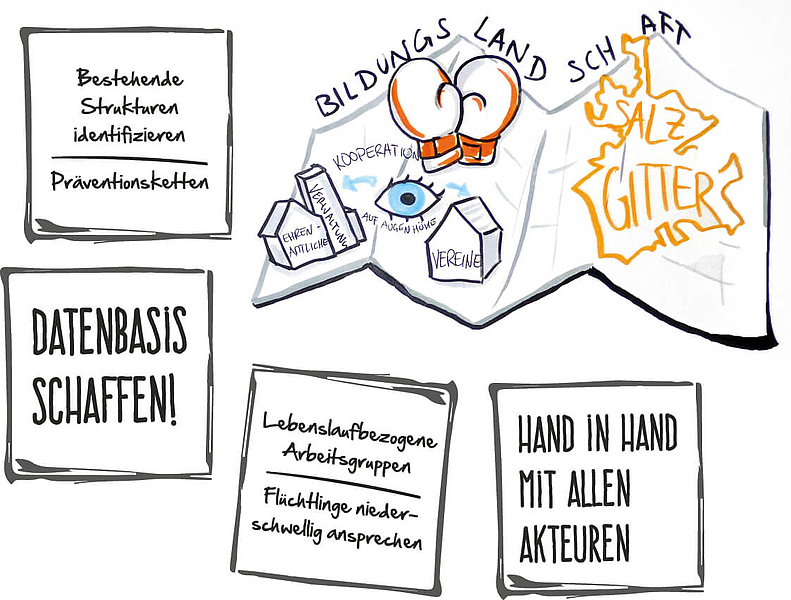 Bestehende
Strukturen
identifizieren
Präventionsketten
BILDUNGS LAND SCHAFT
SALZ
GITTER
KOOPERATION
AUF AUGENHÖHE
VERWALTUNG
EHREN-
AMTLICHE
VEREINE
DATENBASIS
SCHAFFEN!
Lebenslaufbezogene
Arbeitsgruppen
Flüchtlinge nieder-
schwellig ansprechen
HAND IN HAND
MIT ALLEN
AKTEUREN